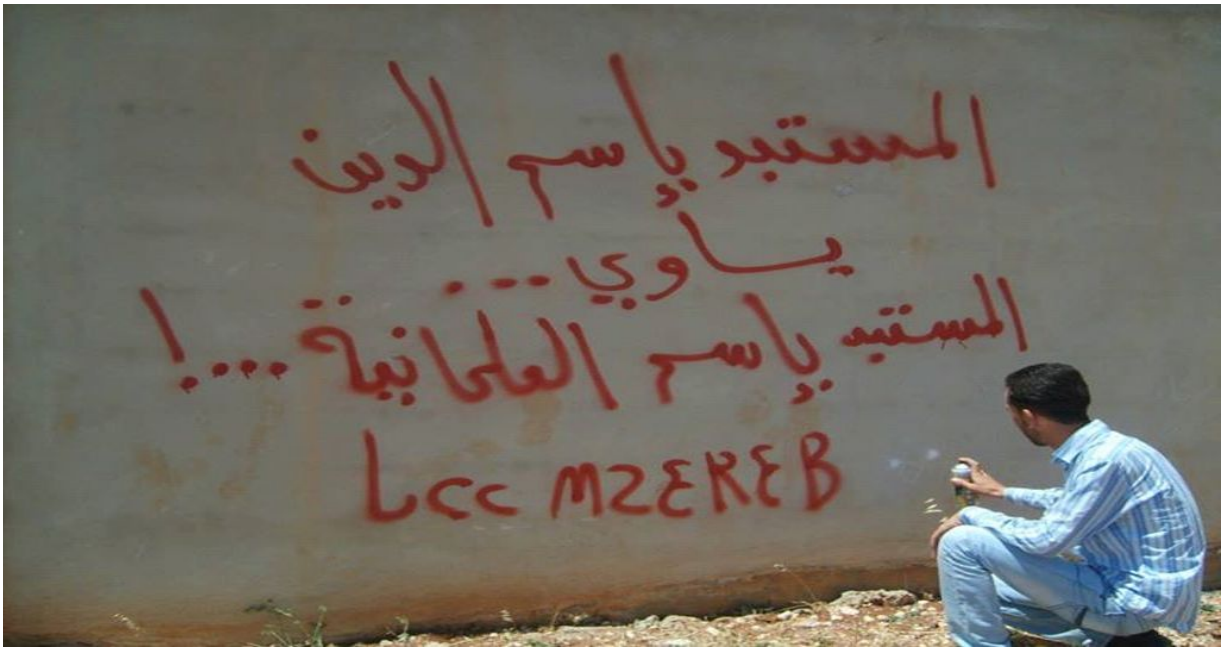 المستبد بإسم الدين
يساوي ...
المستبد بإسم العلمانية ...!
Lcc MZEREB